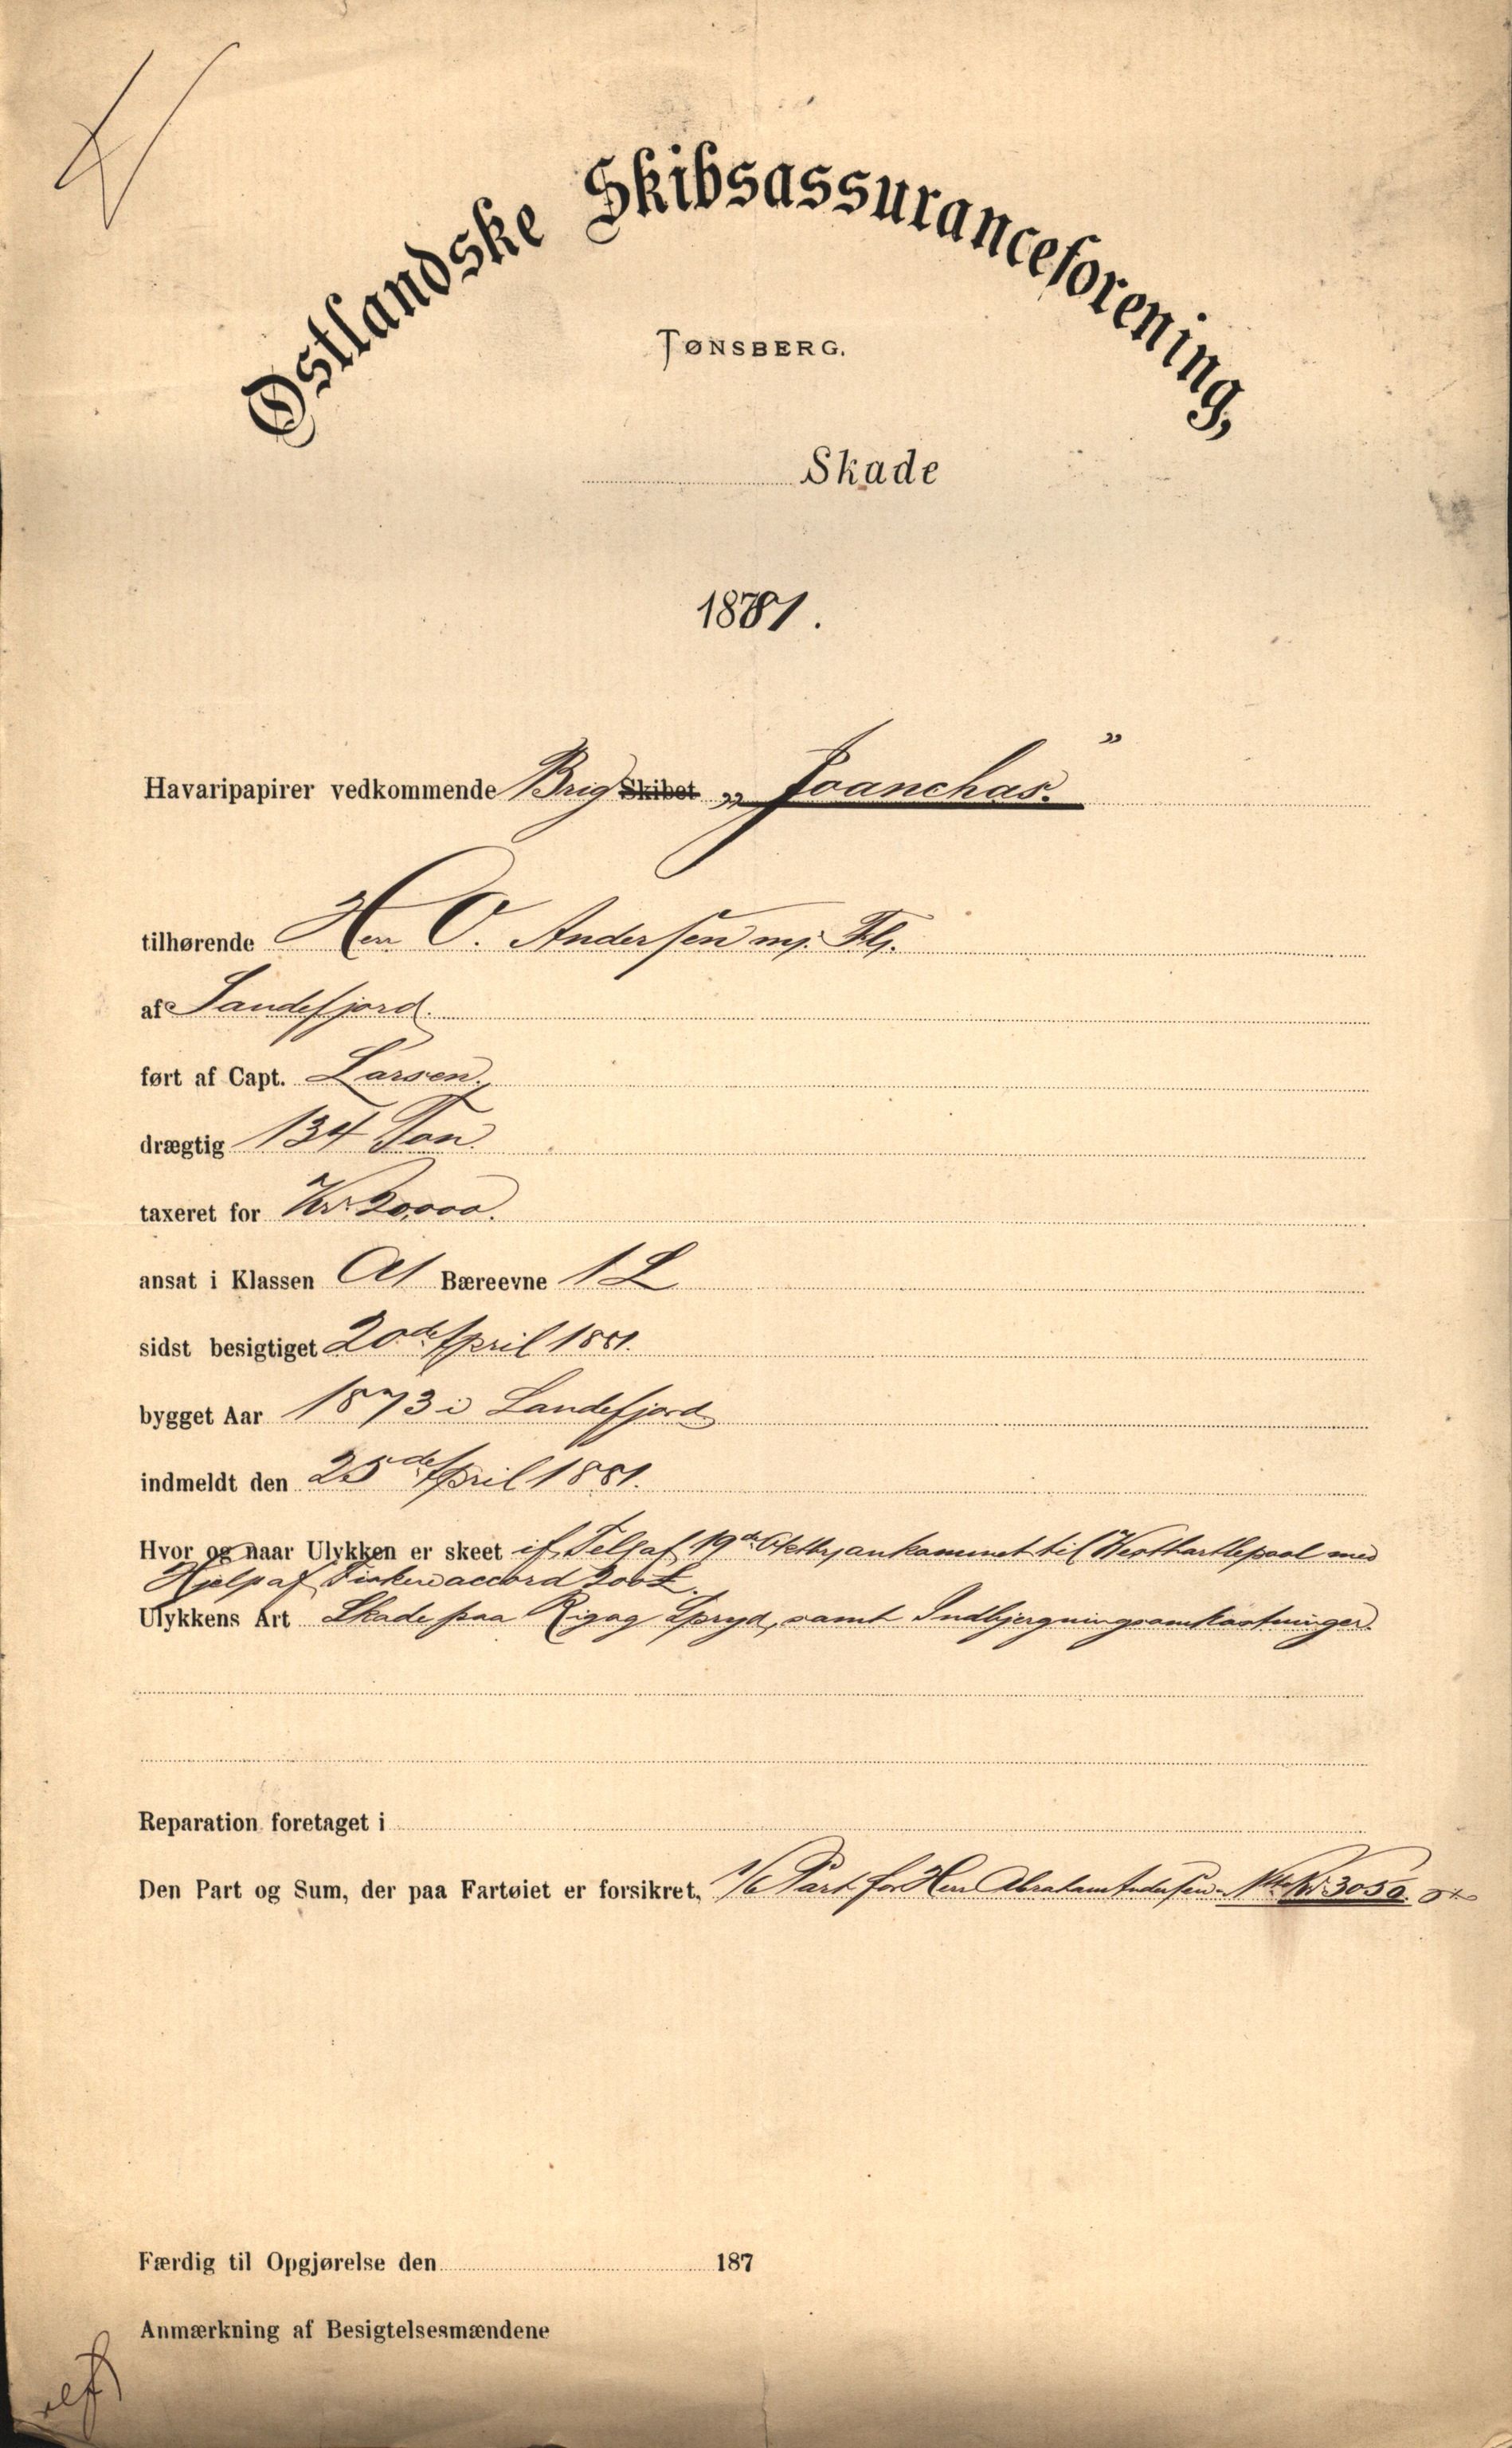 Østlandske Skibsassuranceforening,
TØNSBERG.
Skade
1881.
Havaripapirer vedkommende Brig Skibet „Joanchas."
tilhørende Herr O. Andersen m: Fl:
af Sandefjord.
ført af Capt. Larsen,
drægtig 134 Ton
taxeret for Kr. 20,000.
ansat i Klassen A1 Bæreevne 1 L
sidst besigtiget 20de April 1881.
bygget Aar 1873 i Sandefjord
indmeldt den 25de April 1881.
Hvor og naar Ulykken er skeet if. Telgaf 19de Octbr, ankommet til Westhartlepool med
Hjelp af Fiskere accord 200£.
Ulykkens Art Skade paa Rig og Spryd, samt Indbjergningsomkostninger.
Reparation foretaget i
Den Part og Sum, der paa Fartøiet er forsikret, 1/6 Part for Herr Abraham Andersen Kr. 3050.
Færdig til Opgjørelse den 187
Anmærkning af Besigtelsesmændene